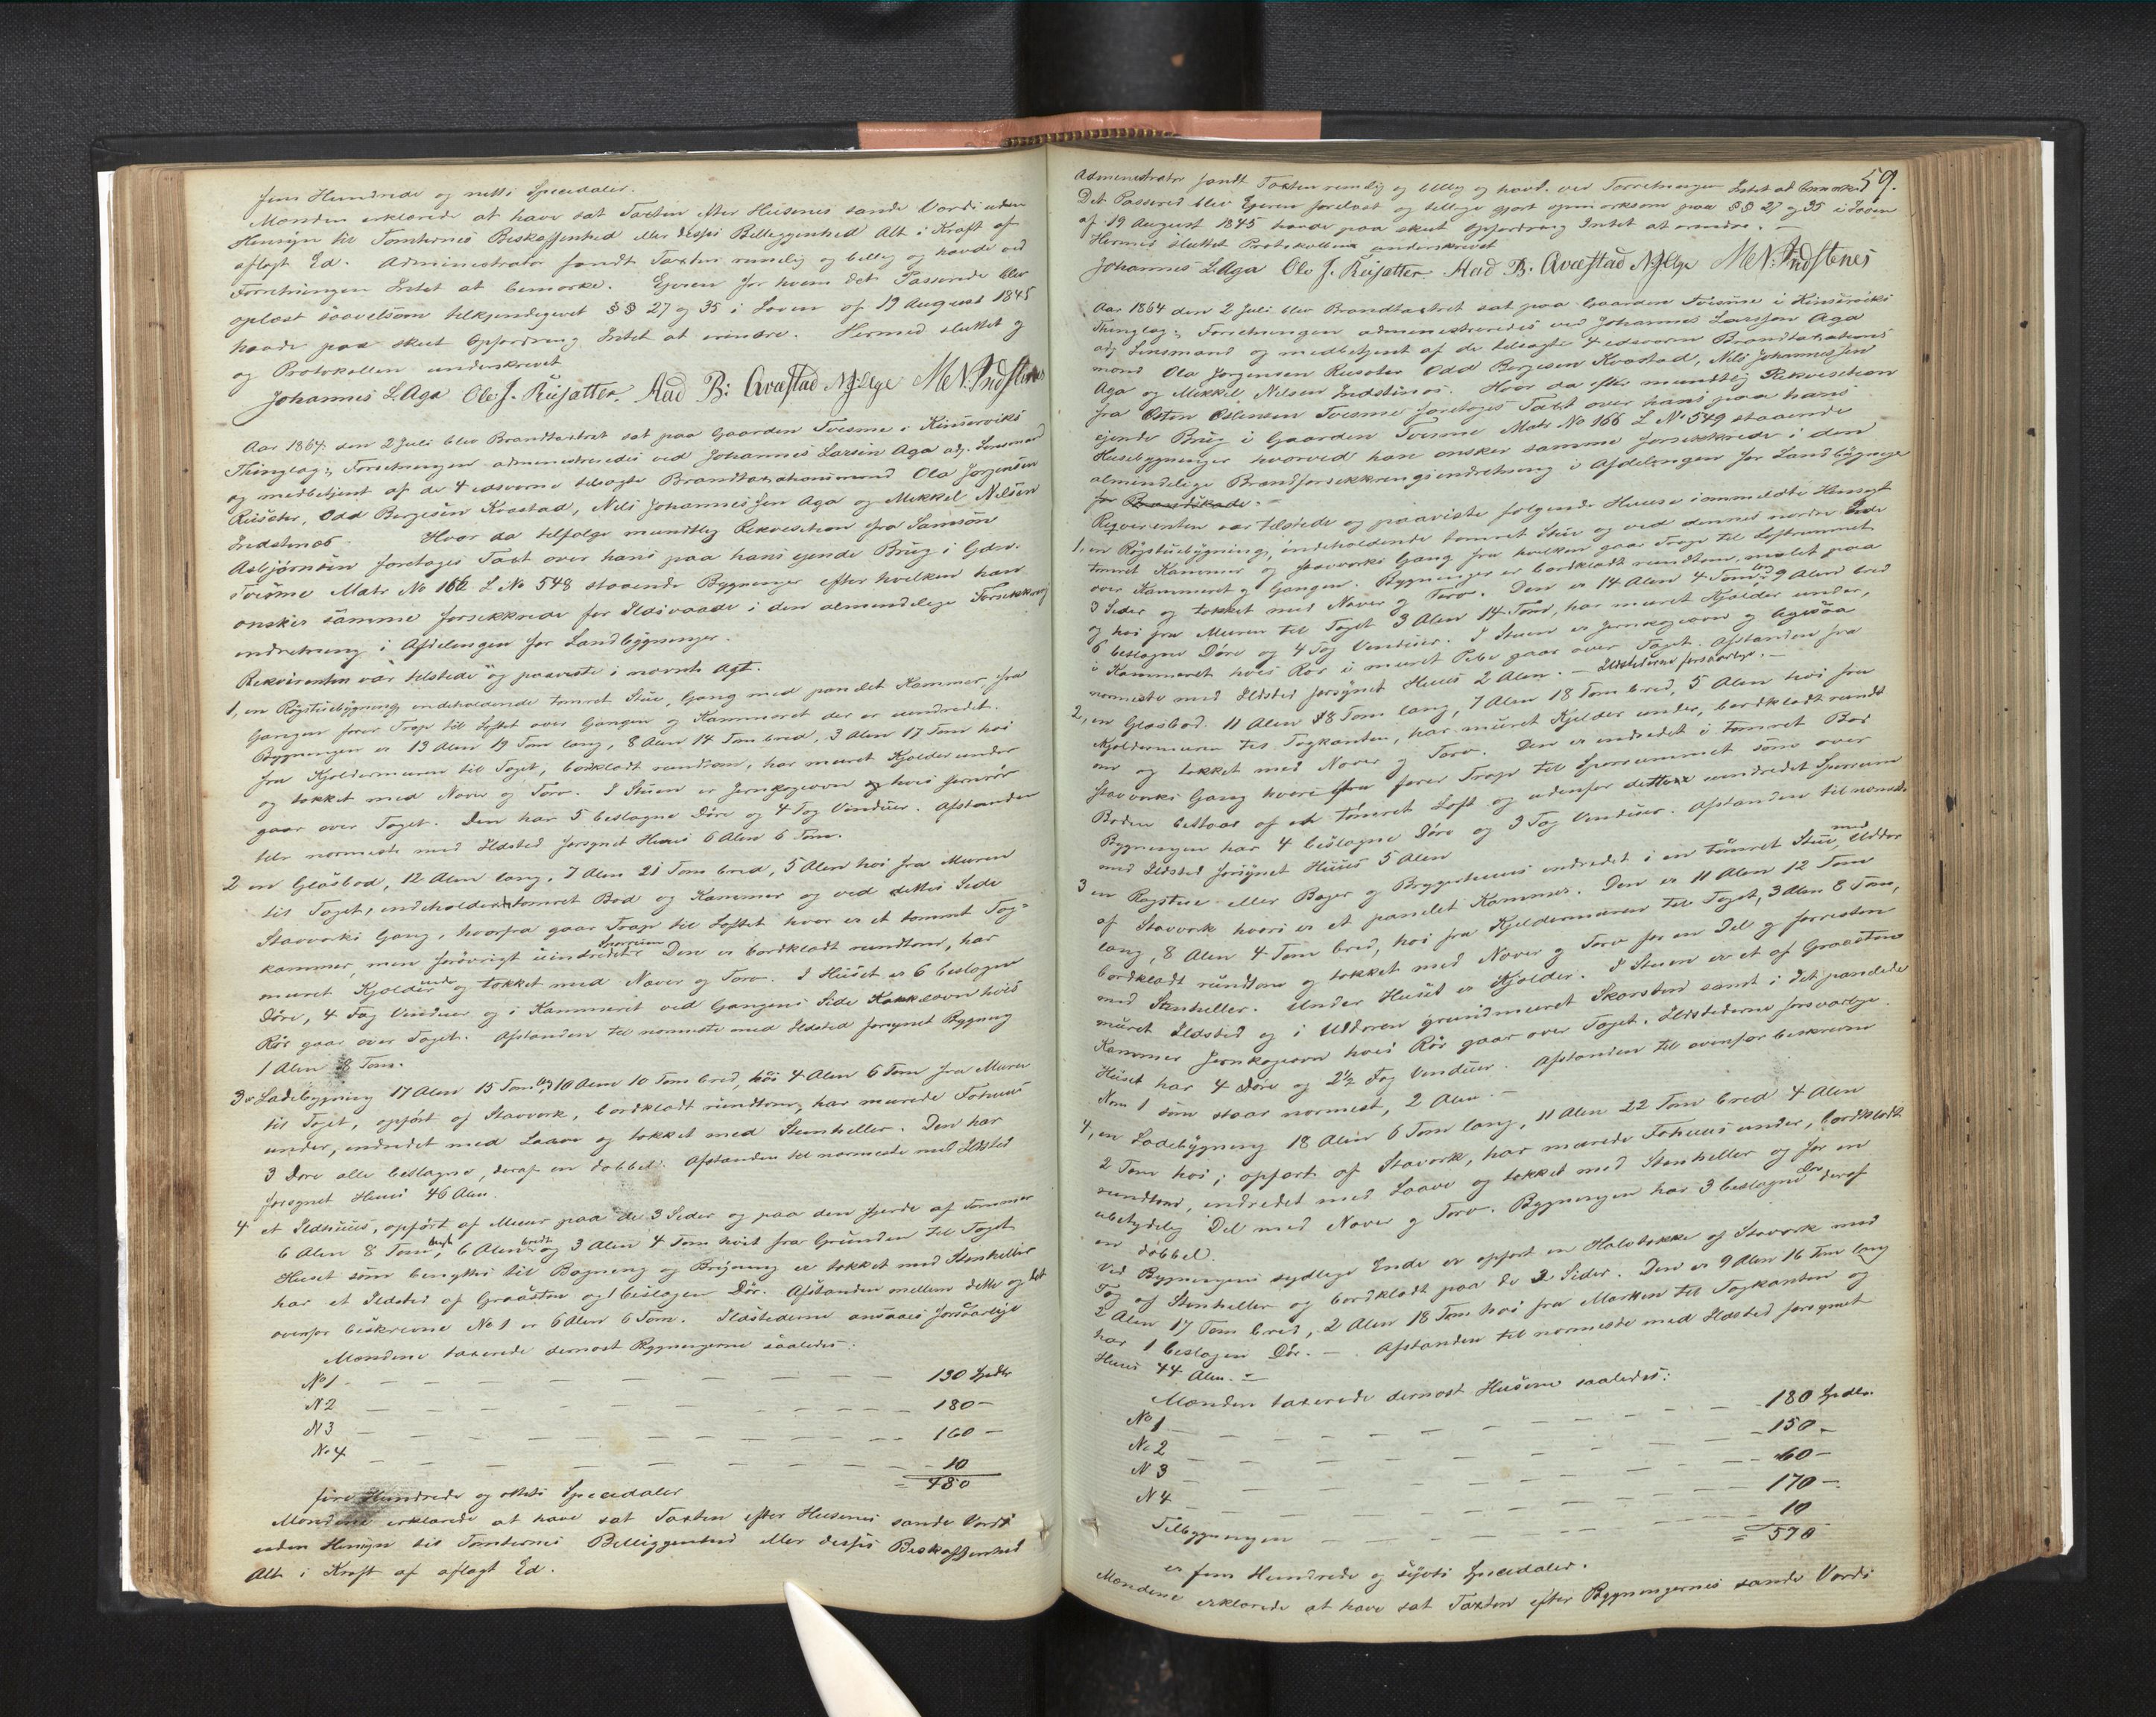 fem Hundrede og nitti Speciedaler.
Mændene erklærede at have sat Taxten efter Husenes sande Værdi uden
Hensyn til Tomternes Beskaffenhed eller disses Belliggenhed Alt i Kraft af
aflagt Ed. Administrator fandt Taxten rimelig og billig og havde ved
Forretningen Intet at bemærke. Eieren for hvem det Passerede blev
oplæst saavelsom tilkjendegivet §§ 27 og 35 i Loven af 19 August 1845
havde paa skeet Opfordring Intet at erindre. Hermed sluttet og
og Protokollen underskrevet
Johannes L. Aga Ole J. Riisætter. Aad B: Qvæstad N J Aga M N. Indstenes
Aar 1864 den 2 Juli blev Brandtaxtret sat paa Gaarden Tvesme i Kinserviks
Thinglag; Forretningen administreredes ved Johannes Larsen Aga adj. Lensmand
og medbetjent af de 4 edsvorne tilsagte Brandtaxationsmænd Ola Jørgensen
Riisæter, Odd Bergesen Kvæstad, Nils Johannessen Aga og Mikkel Nilsen
Indstenæs. Hvor da tilfølge mundtlig Rekvisition fra Samson
Asbjørnsen foretoges Taxt over hans paa hans eiende Brug i Gdn.
Tvesme Matr No 166 L No 548 staaende Bygninger efter hvilken han
ønsker samme forsikkrede for Ildsvaade i den almindelige Forsikkrings
indretning i Afdelingen for Landbygninger.
Rekvirenten var tilstede og paaviste i nævnte Agt.
1, en Røgstuebygning indeholdende tømret Stue, Gang med panelet Kammer fra
Gangen fører Trap til Loftet over Gangen og Kammeret der er uindredet.
Bygningen er 13 Alen 19 Tom lang, 8 Alen 14 Tom bred, 3 Alen 17 Tom høi
fra Kjeldermuren til Taget, bordklædt rundtom, har muret Kjelder under
og tækket med Næver og Torv. I Stuen er Jernkogeovn hvis Jernrør
gaar over Taget. Den har 5 beslagne Døre og 4 Fag Vinduer. Afstanden
til nærmeste med Ildsted forsynet Huus 6 Alen 6 Tom.
2 en Glasbod, 12 Alen lang, 7 Alen 21 Tom bred, 5 Alen høi fra Muren
til Taget, indeholdende tømret Bod og Kammer og ved dettes Side
Stavverks Gang, hvorfra gaar Trap til Loftet hvor er et tømmret Tag-
kammer, men forøvrigt uindredet Sperrum. Den er bordklædt rundtom, har
muret Kjelder under og tækket med Næver og Torv. I Huset er 6 beslagne
Døre, 4 Fag Vinduer og i Kammeret ved Gangens Side Kakkelovn hvis
Rør gaar over Taget. Afstanden til nærmeste med Ildsted forsynet Bygning
1 Alen 8 Tom.
3 en Ladebygning 17 Alen 15 Tom lang 10 Alen 10 Tom bred, høi 4 Alen 6 Tom fra Muren
til Taget, opført af Stavverk, bordklædt rundtom, har murede Fæhuus
under, indredet med Laave og tækket med Steenheller. Den har
3 Døre alle beslagne, deraf en dobbel. Afstanden til nærmeste med Ildsted
forsynet Huus 46 Alen.
4 et Ildhuus, opført af Muur paa de 3 Sider og paa den fjerde af Tømmer
6 Alen 8 Tom langt, 6 Alen bredt og 3 Alen 4 Tom høit fra Grunden til Taget
Huset som benyttes til Bagning og Brygning er tækket med Steenheller
har et Ildsted af Graasten og 1 beslagen Dør. Afstanden mellem dette og det
ovenfor beskrevne No 1 er 6 Alen 6 Tom. Ildstederne ansaaes forsvarlige
Mændene taxerede dernæst Bygningerne saaledes:
No 1 — — — — — — — 130 Spdlr
N 2 — — — — — — — 180 —
N 3 — — — — — — — 160 —
No 4 — — — — — — — 10
= 480
fire Hundrede og otteti Speciedaler
Mændene erklærede at have sat Taxten efter Husenes sande Værdi
uden Hensyn til Tomternes Belliggenhed eller disses Beskaffenhed
Alt i Kraft af aflagt Ed.
59.
Administrator fandt Taxten rimelig og billig og havde ved Forretningen Intet at bemærke
Det Passerede blev Eieren forelæst og tillige gjort opmærksom paa §§ 27 og 35 i Loven
af 19 August 1845 havde paa skeet Opfordring Intet at erindre. —
Hermed sluttet Protokollen underskrevet
Johannes L. Aga Ole J. Riisætter Aad B. Qvæstad N J Aga M N. Indstenes
Aar 1864 den 2 Juli blev Brandtaxtret sat paa Gaarden Tvesme i Kinserviks
Thinglag; Forretningen administreredes ved Johannes Larsen Aga
adj Lensmand og medbetjent af de tilsagte 4 edsvorne Brandtaxations
mænd Ola Jørgensen Riisæter Odd Bergesen Kvæstad, Nils Johannessen
Aga og Mikkel Nilsen Indstenæs. Hvor da efter mundtlig Rekvisition
fra Østen Østensen Tvesme foretoges Taxt over hans paa hans
eiende Brug i Gaarden Tvesme Matr No 166 L No 549 staaende
Huusebygninger hvorved han ønsker samme forsikkrede i den
almindelige Brandforsikkringsindretning i Afdelingen for Landbygninger
for Brandskade. —
Reqvirenten var tilstede og paaviste følgende Huuse i anmeldte Hensigt
1, en Røgstuebygning, indeholdende tømret Stue og ved dennes nordre Ende
tømret Kammer og Stavverks Gang fra hvilken gaar Trap til Loftrummet
over Kammeret og Gangen. Bygningen er bordklædt rundtom, malet paa
3 Sider og tækket med Næver og Torv. Den er 14 Alen 4 Tom lang 9 Alen bred
og høi fra Muren til Taget 3 Alen 14 Tom, har muret Kjelder under,
6 beslagne Døre og 4 Fag Vinduer. I Stuen er Jernkogeovn og ligesaa
i Kammeret hvis Rør i muret Pibe gaar over Taget. Afstanden fra
nærmeste med Ildsted forsynet Huus 2 Alen. — Ildstederne forsvarlige. —
2, en Glasbod. 11 Alen 18 Tom lang, 7 Alen 18 Tom bred, 5 Alen høi fra
Kjeldermuren til Tagkanten, har muret Kjelder under, bordklædt rundt
om og tækket med Næver og Torv. Den er indredet i tømret Bod
Stavverks Gang hvori fører Trap til Sperrummet som over
Boden bestaar af et tømret Loft og udenfor dette uindredet Sperrum
Bygningen har 4 beslagne Døre og 3 Fag Vinduer. Afstanden til nærmeste
med Ildsted forsynet Huus 5 Alen
3 en Røgstue eller Bager og Bryggerhuus indredet i en tømret Stue, med Uddør
af Stavverk hvori er et panelet Kammer. Den er 11 Alen 12 Tom
lang, 8 Alen 4 Tom bred, høi fra Kjeldermuren til Taget, 3 Alen 8 Tom,
bordklædt rundtom og tækket med Næver og Torv for en Del og forresten
med Steenheller. Under Huset er Kjelder. I Stuen er et af Graasten
muret Ildsted og i Uddøren grundmuret Skorsten samt i det panelede
Kammer Jernkogeovn hvis Rør gaar over Taget. Ildstederne forsvarlige.
Huset har 4 Døre og 2½ Fag Vinduer. Afstanden til ovenfor beskrevne
Nom 1 som staar nærmest, 2 Alen. —
4, en Ladebygning 18 Alen 6 Tom lang, 11 Alen 22 Tom bred 4 Alen
2 Tom høi; opført af Stavverk, har murede Fæhuus under, bordklædt
rundtom, indredet med Laave og tækket med Steenheller og for en
ubetydelig Del med Næver og Torv. Bygningen har 3 beslagne Døre deraf
en dobbel.
Ved Bygningens sydlige Ende er opført en Halvtække af Stavverk med
Tag af Steenheller og bordklædt paa de 2 Sider. Den er 9 Alen 16 Tom lang
2 Alen 17 Tom bred, 2 Alen 18 Tom høi fra Marken til Tagkanten og
har 1 beslagen Dør. — Afstanden til nærmeste med Ildsted forsynet
Huus 44 Alen. —
Mændene taxerede dernæst Husene saaledes:
No 1 — — — — — — — 180 Spdlr.
No 2 — — — — — — — 150 —
N 3 — — — — — — — 60 —
N 4 — — — — — — — 170 —
Tilbygningen — — — — — 10
= 570
er fem Hundrede og sytti Speciedaler.
Mændene erklærede at have sat Taxten efter Bygningernes sande Værdi